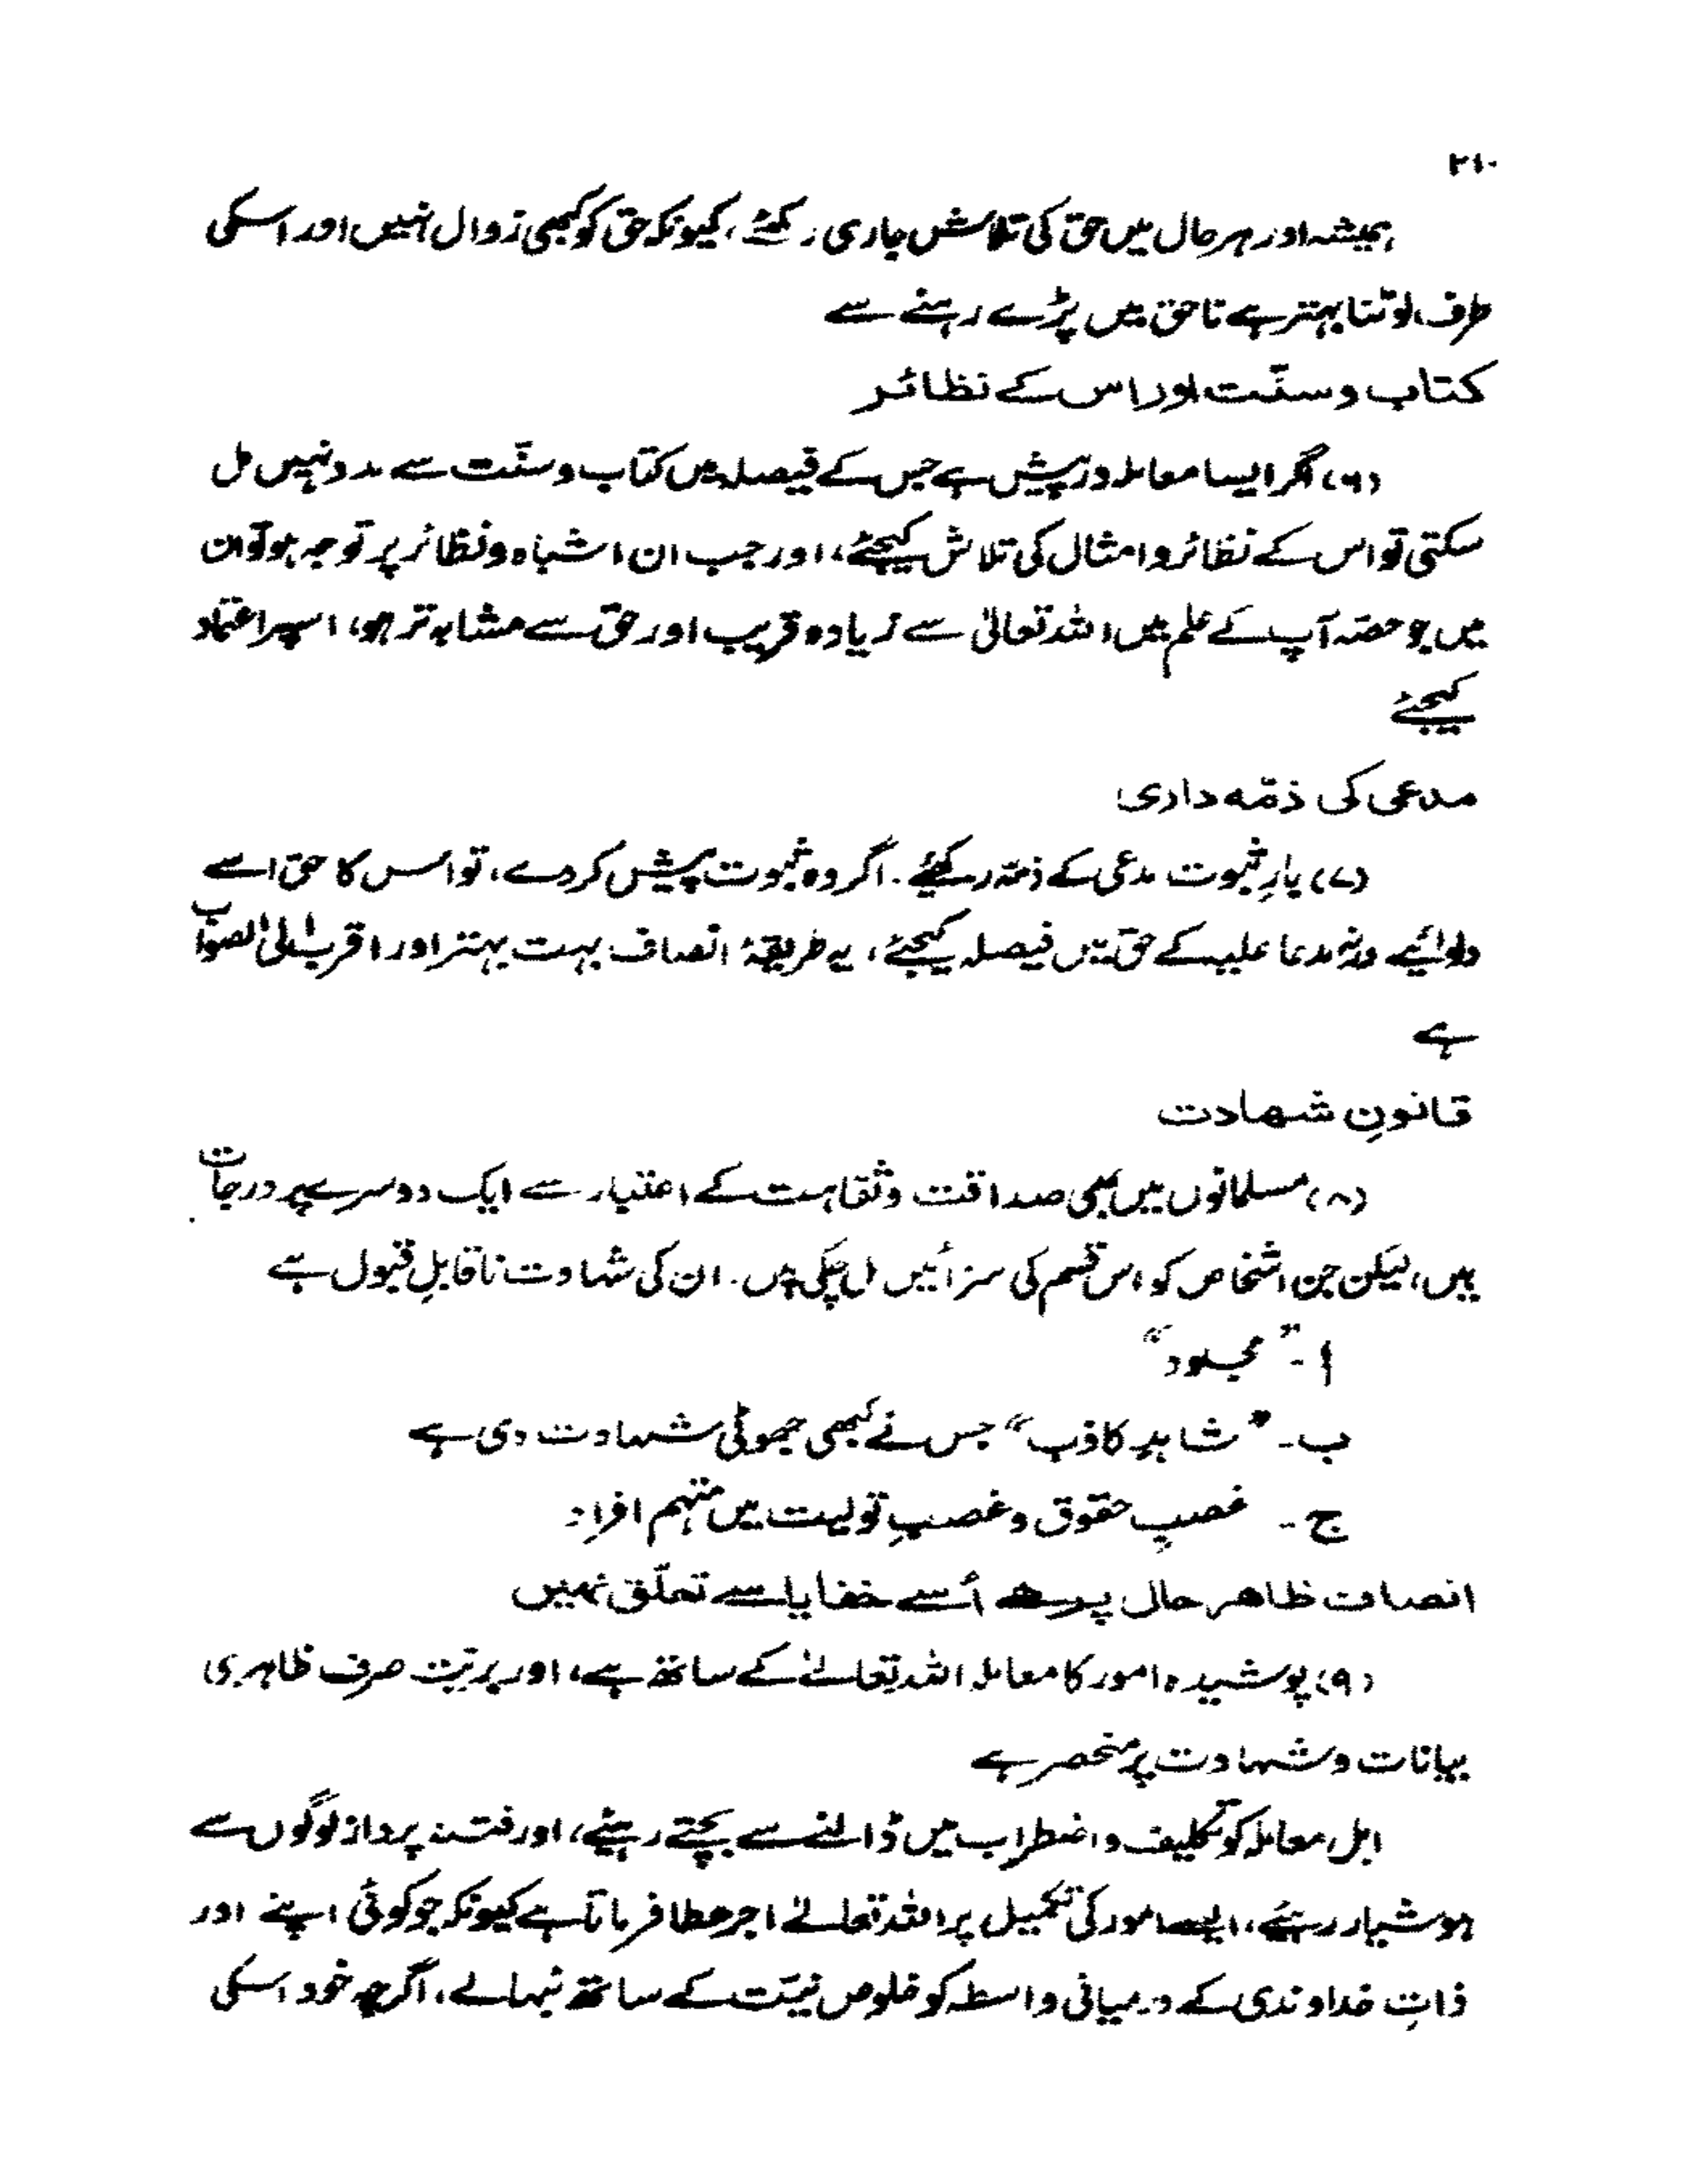 ۲۱۰
ہمیشہ اور ہر حال میں حق کی تلاش جاری رکھئے، کیونکہ حق کو کبھی زوال نہیں اور اسکی
طرف لوٹنا بہتر ہے ناحق میں پڑے رہنے سے
کتاب و سنّت اور اس کے نظائر
(۶) اگر ایسا معاملہ درپیش ہے جس کے فیصلہ میں کتاب و سنّت سے مدد نہیں مل
سکتی تو اس کے نظائر و امثال کی تلاش کیجئے، اور جب ان اشباہ و نظائر پر توجہ ہو تو ان
میں جو حصّہ آپ کے علم میں اللہ تعالیٰ سے زیادہ قریب اور حق سے مشابہ تر ہو، اسپر اعتماد
کیجئے
مدعی کی ذمّہ داری
(۷) بارِ ثبوت مدعی کے ذمّہ رکھئے۔ اگر وہ ثبوت پیش کر دے، تو اس کا حق اسے
دلوائیے ورنہ مدعا علیہ کے حق میں فیصلہ کیجئے، یہ طریقۂ انصاف بہت بہتر اور اقرب الی الصواب
ہے
قانونِ شہادت
(۸) مسلمانوں میں بھی صداقت و ثقاہت کے اعتبار سے ایک دوسرے پر درجات
ہیں، لیکن جن اشخاص کو اس قسم کی سزائیں مل چکی ہیں۔ ان کی شہادت ناقابلِ قبول ہے
ا۔ ”مجلود“
ب۔ ”شاہدِ کاذب“ جس نے کبھی جھوٹی شہادت دی ہے
ج۔ غصبِ حقوق و غصبِ تولیت میں متہم افراد
انصاف ظاہر حال پر ہے اُسے خفایا سے تعلّق نہیں
(۹) پوشیدہ امور کا معاملہ اللہ تعالےٰ کے ساتھ ہے، اور بریّت صرف ظاہری
بیانات و شہادت پر منحصر ہے
اہل معاملہ کو تکلیف و اضطراب میں ڈالنے سے بچتے رہئیے، اور فتنہ پرداز لوگوں سے
ہوشیار رہئے، ایسے امور کی تکمیل پر اللہ تعالےٰ اجر عطا فرماتا ہے کیونکہ جو کوئی اپنے اور
ذاتِ خداوندی کے درمیانی واسطہ کو خلوص نیّت کے ساتھ نبہالے، اگرچہ خود اسکی